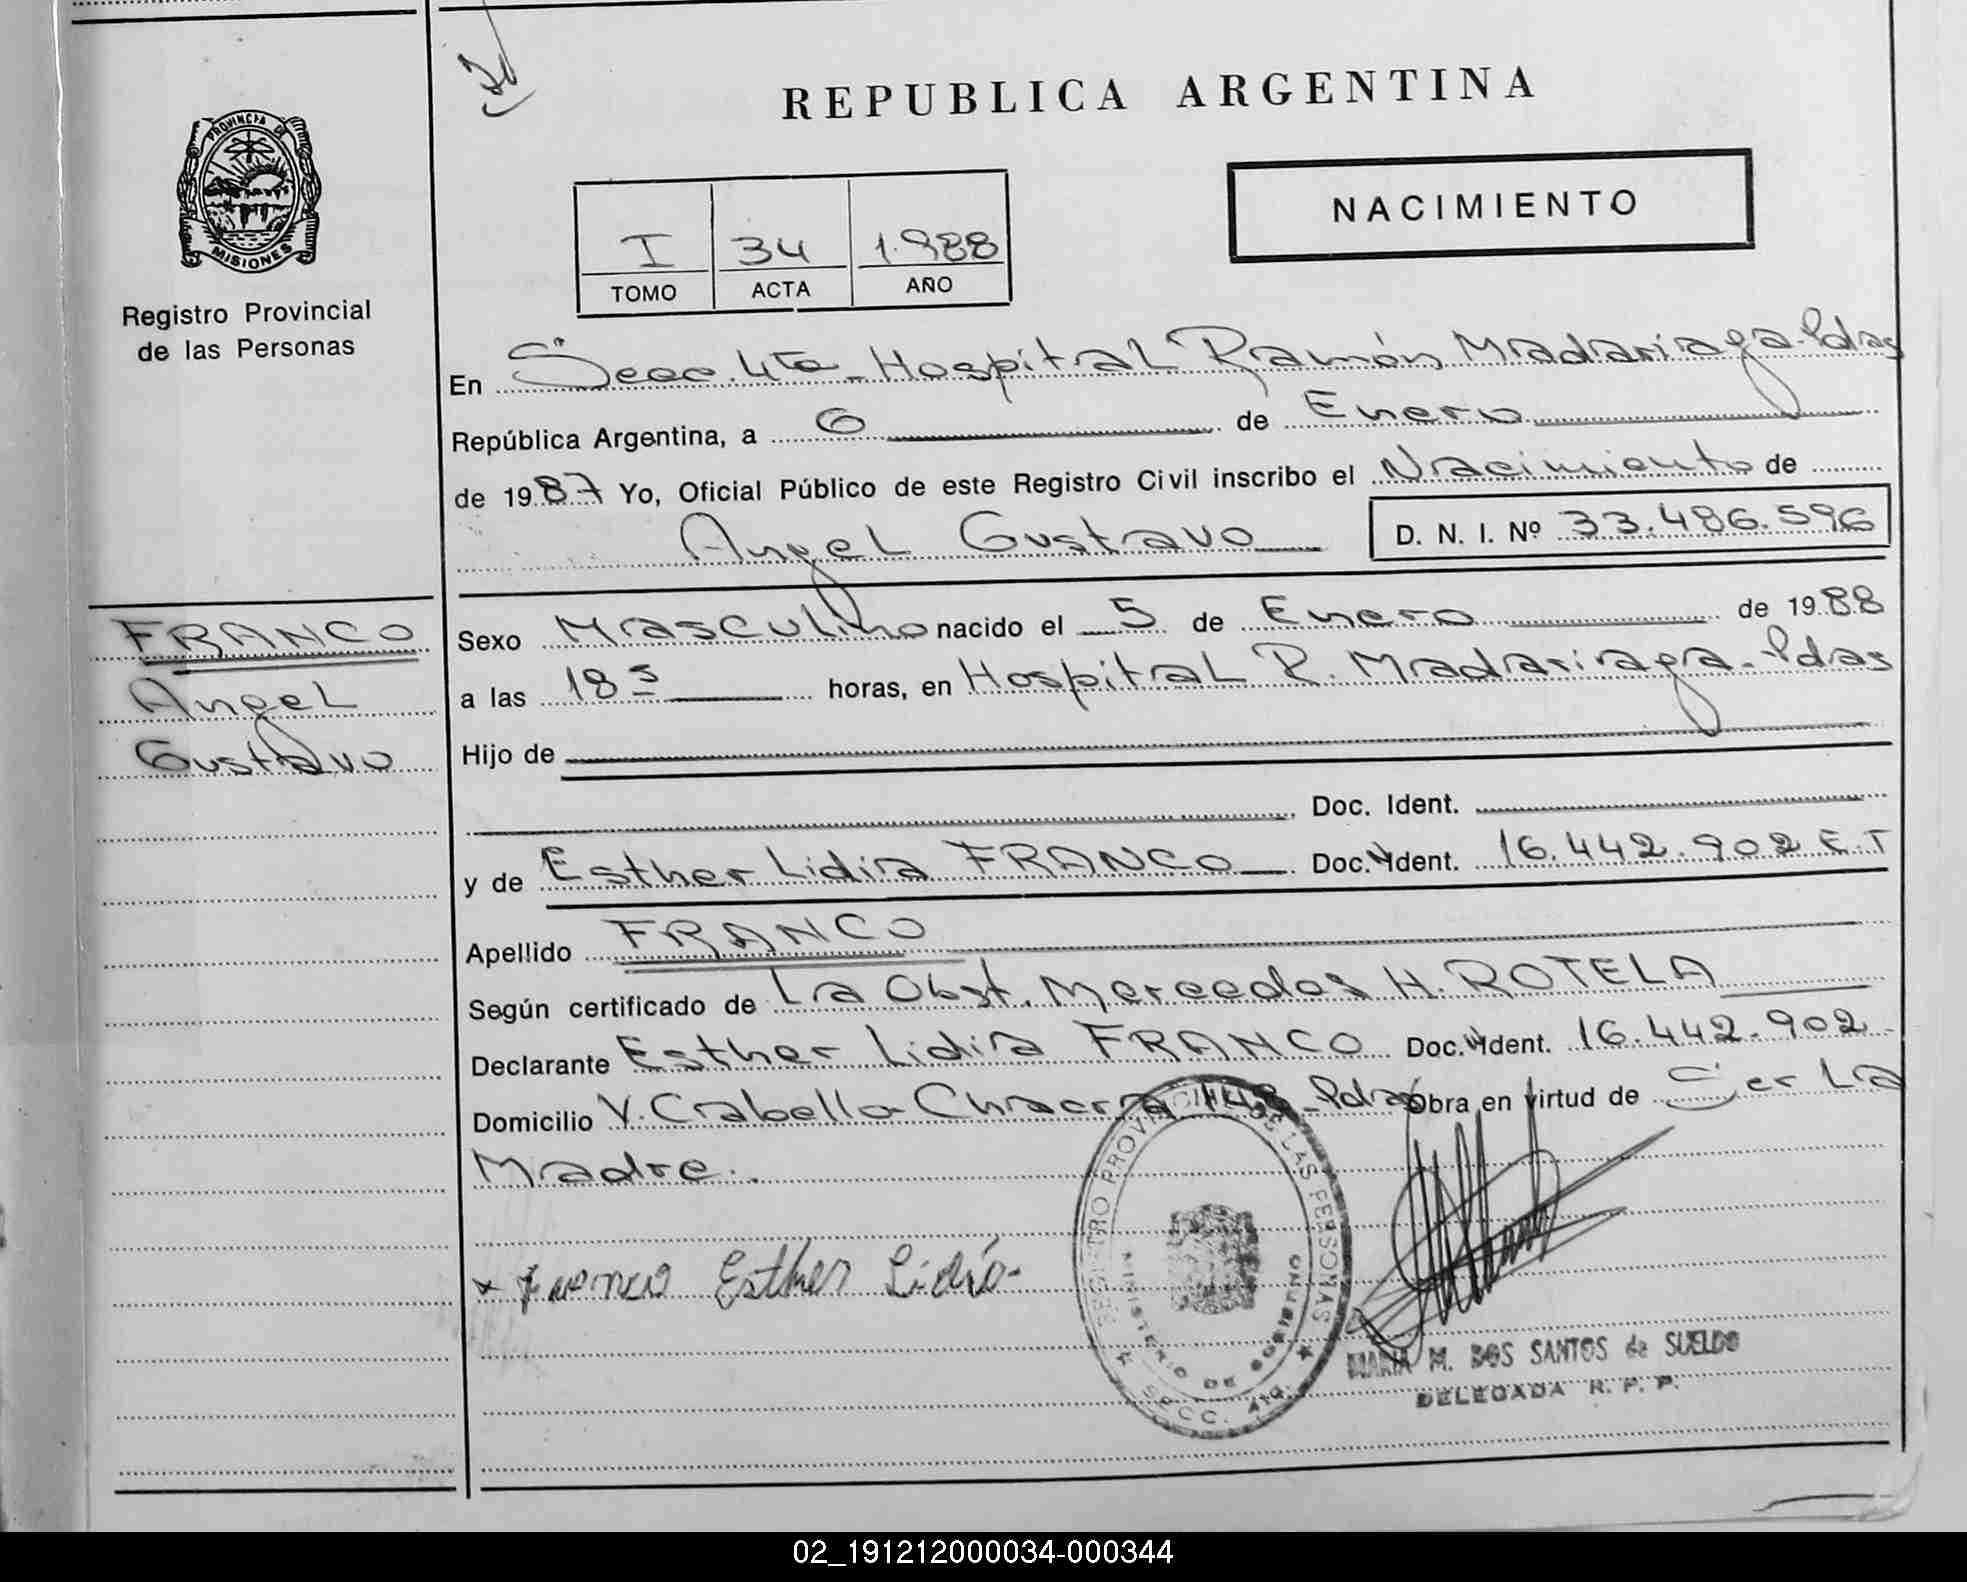 REPUBLICA ARGENTINA
NACIMIENTO
I 34 1.988
TOMO ACTA AÑO
PROVINCIA DE
MISIONES
Registro Provincial
de las Personas
En Secc. 4ta_Hospital Ramón Madariaga-Pdas
República Argentina, a 6 de Enero
de 1987 Yo, Oficial Público de este Registro Civil inscribo el Nacimiento de
Angel Gustavo D. N. I. Nº 33.486.596
FRANCO
Angel
Gustavo
Sexo Masculino nacido el 5 de Enero de 1988
a las 18 5 horas, en Hospital R. Madariaga-Pdas
Hijo de
Doc. Ident.
y de Esther Lidia FRANCO Doc. Ident. 16.442.902 E.T
Apellido FRANCO
Según certificado de La Obst. Mercedes H. ROTELA
Declarante Esther Lidia FRANCO Doc. Ident. 16.442.902
Domicilio V. Cabello-Chacra 148_Pdas Obra en virtud de Ser La
Madre.
x Franco Esther Lidia-
REGISTRO PROVINCIAL DE LAS PERSONAS
MINISTERIO DE GOBIERNO
SECC. 4ta.
MARIA M. DOS SANTOS de SUELDO
DELEGADA R. P. P.
02_191212000034-000344